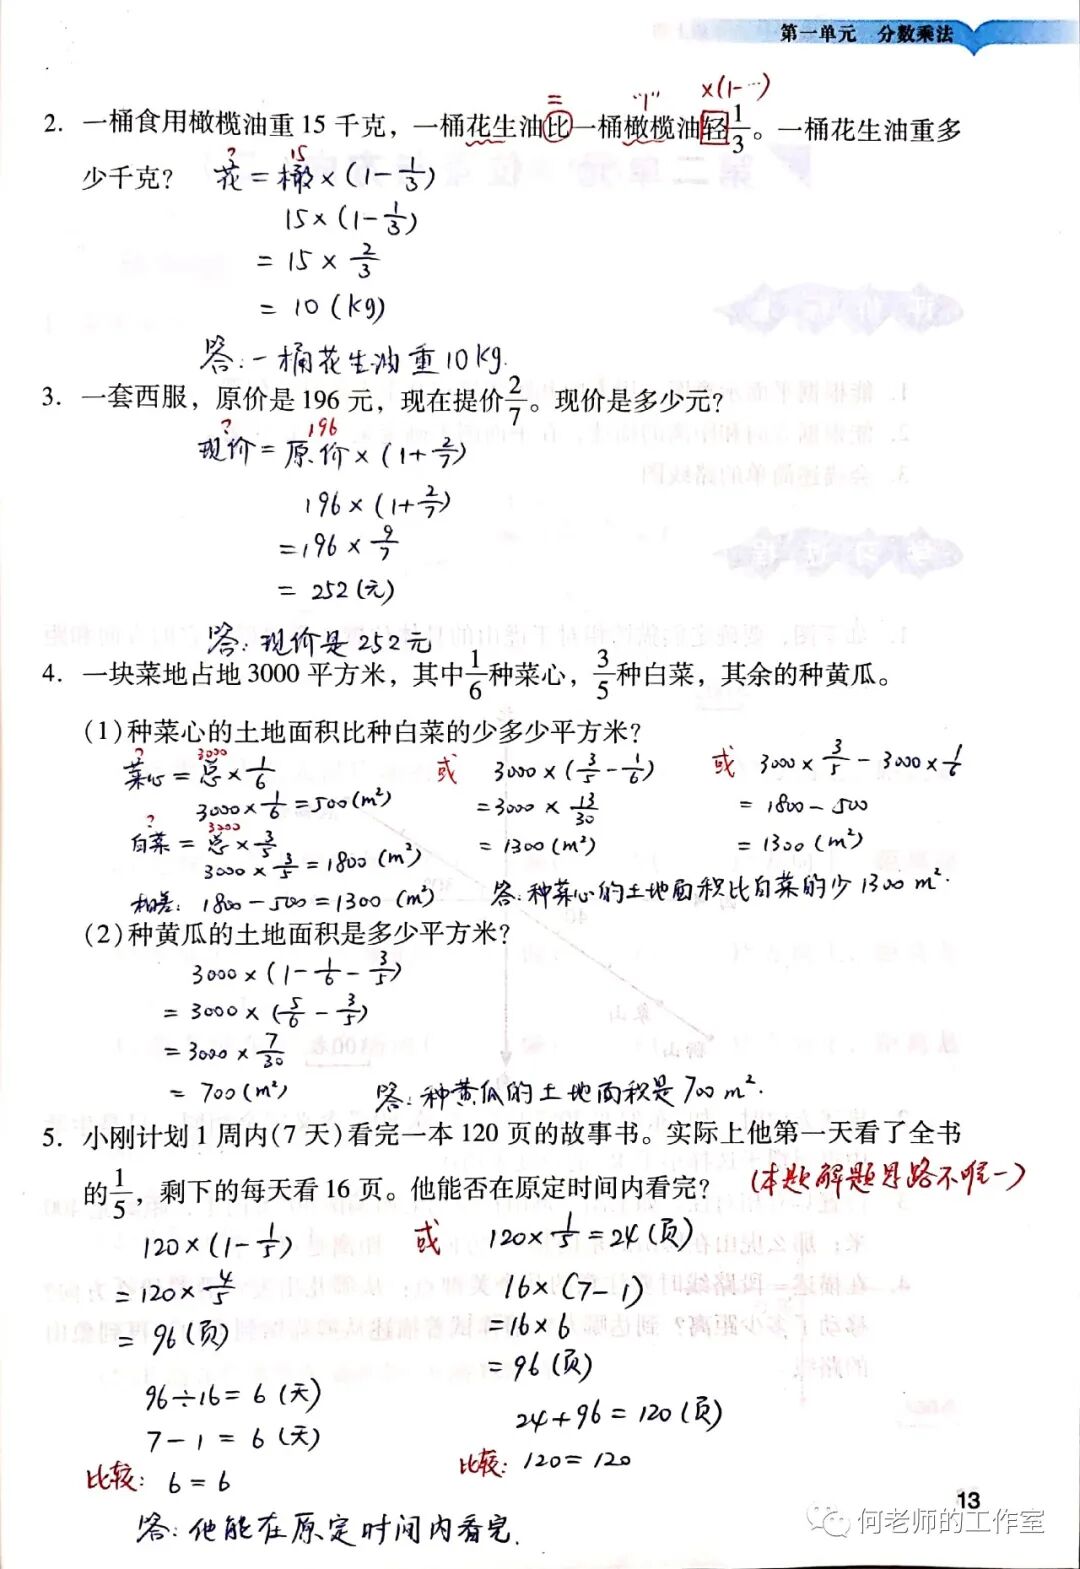 第一单元 分数乘法
= "1" ×(1-…)
2. 一桶食用橄榄油重15千克，一桶花生油比一桶橄榄油轻1/3。一桶花生油重多
少千克？
? 15
花=橄×(1-1/3)
15×(1-1/3)
=15×2/3
=10(kg)
答:一桶花生油重10kg.
3. 一套西服，原价是196元，现在提价2/7。现价是多少元？
? 196
现价=原价×(1+2/7)
196×(1+2/7)
=196×9/7
=252(元)
答:现价是252元
4. 一块菜地占地3000平方米，其中1/6种菜心，3/5种白菜，其余的种黄瓜。
(1)种菜心的土地面积比种白菜的少多少平方米？
? 3000
菜心=总×1/6
3000×1/6=500(m²)
? 3000
白菜=总×3/5
3000×3/5=1800(m²)
相差: 1800-500=1300(m²)
或 3000×(3/5-1/6)
=3000×13/30
=1300(m²)
或 3000×3/5-3000×1/6
=1800-500
=1300(m²)
答:种菜心的土地面积比白菜的少1300m².
(2)种黄瓜的土地面积是多少平方米？
3000×(1-1/6-3/5)
=3000×(5/6-3/5)
=3000×7/30
=700(m²)
答:种黄瓜的土地面积是700m².
5. 小刚计划1周内(7天)看完一本120页的故事书。实际上他第一天看了全书
的1/5，剩下的每天看16页。他能否在原定时间内看完？
(本题解题思路不唯一)
120×(1-1/5)
=120×4/5
=96(页)
96÷16=6(天)
7-1=6(天)
比较: 6=6
或 120×1/5=24(页)
16×(7-1)
=16×6
=96(页)
24+96=120(页)
比较: 120=120
答:他能在原定时间内看完.
13
何老师的工作室